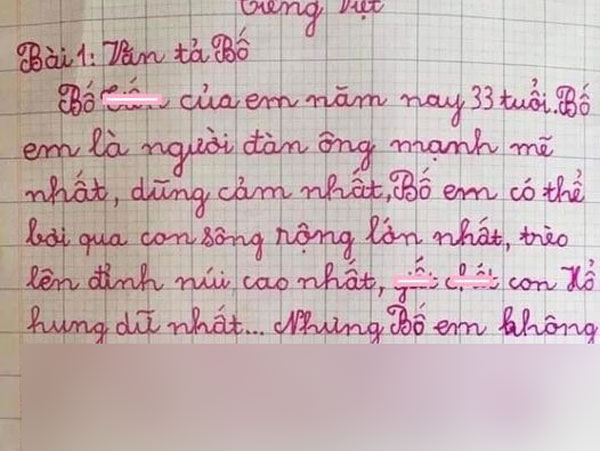 Tiếng Việt
Bài 1: Văn tả Bố
Bố của em năm nay 33 tuổi. Bố
em là người đàn ông mạnh mẽ
nhất, dũng cảm nhất, Bố em có thể
bơi qua con sông rộng lớn nhất, trèo
lên đỉnh núi cao nhất, con Hổ
hung dữ nhất... Nhưng Bố em không